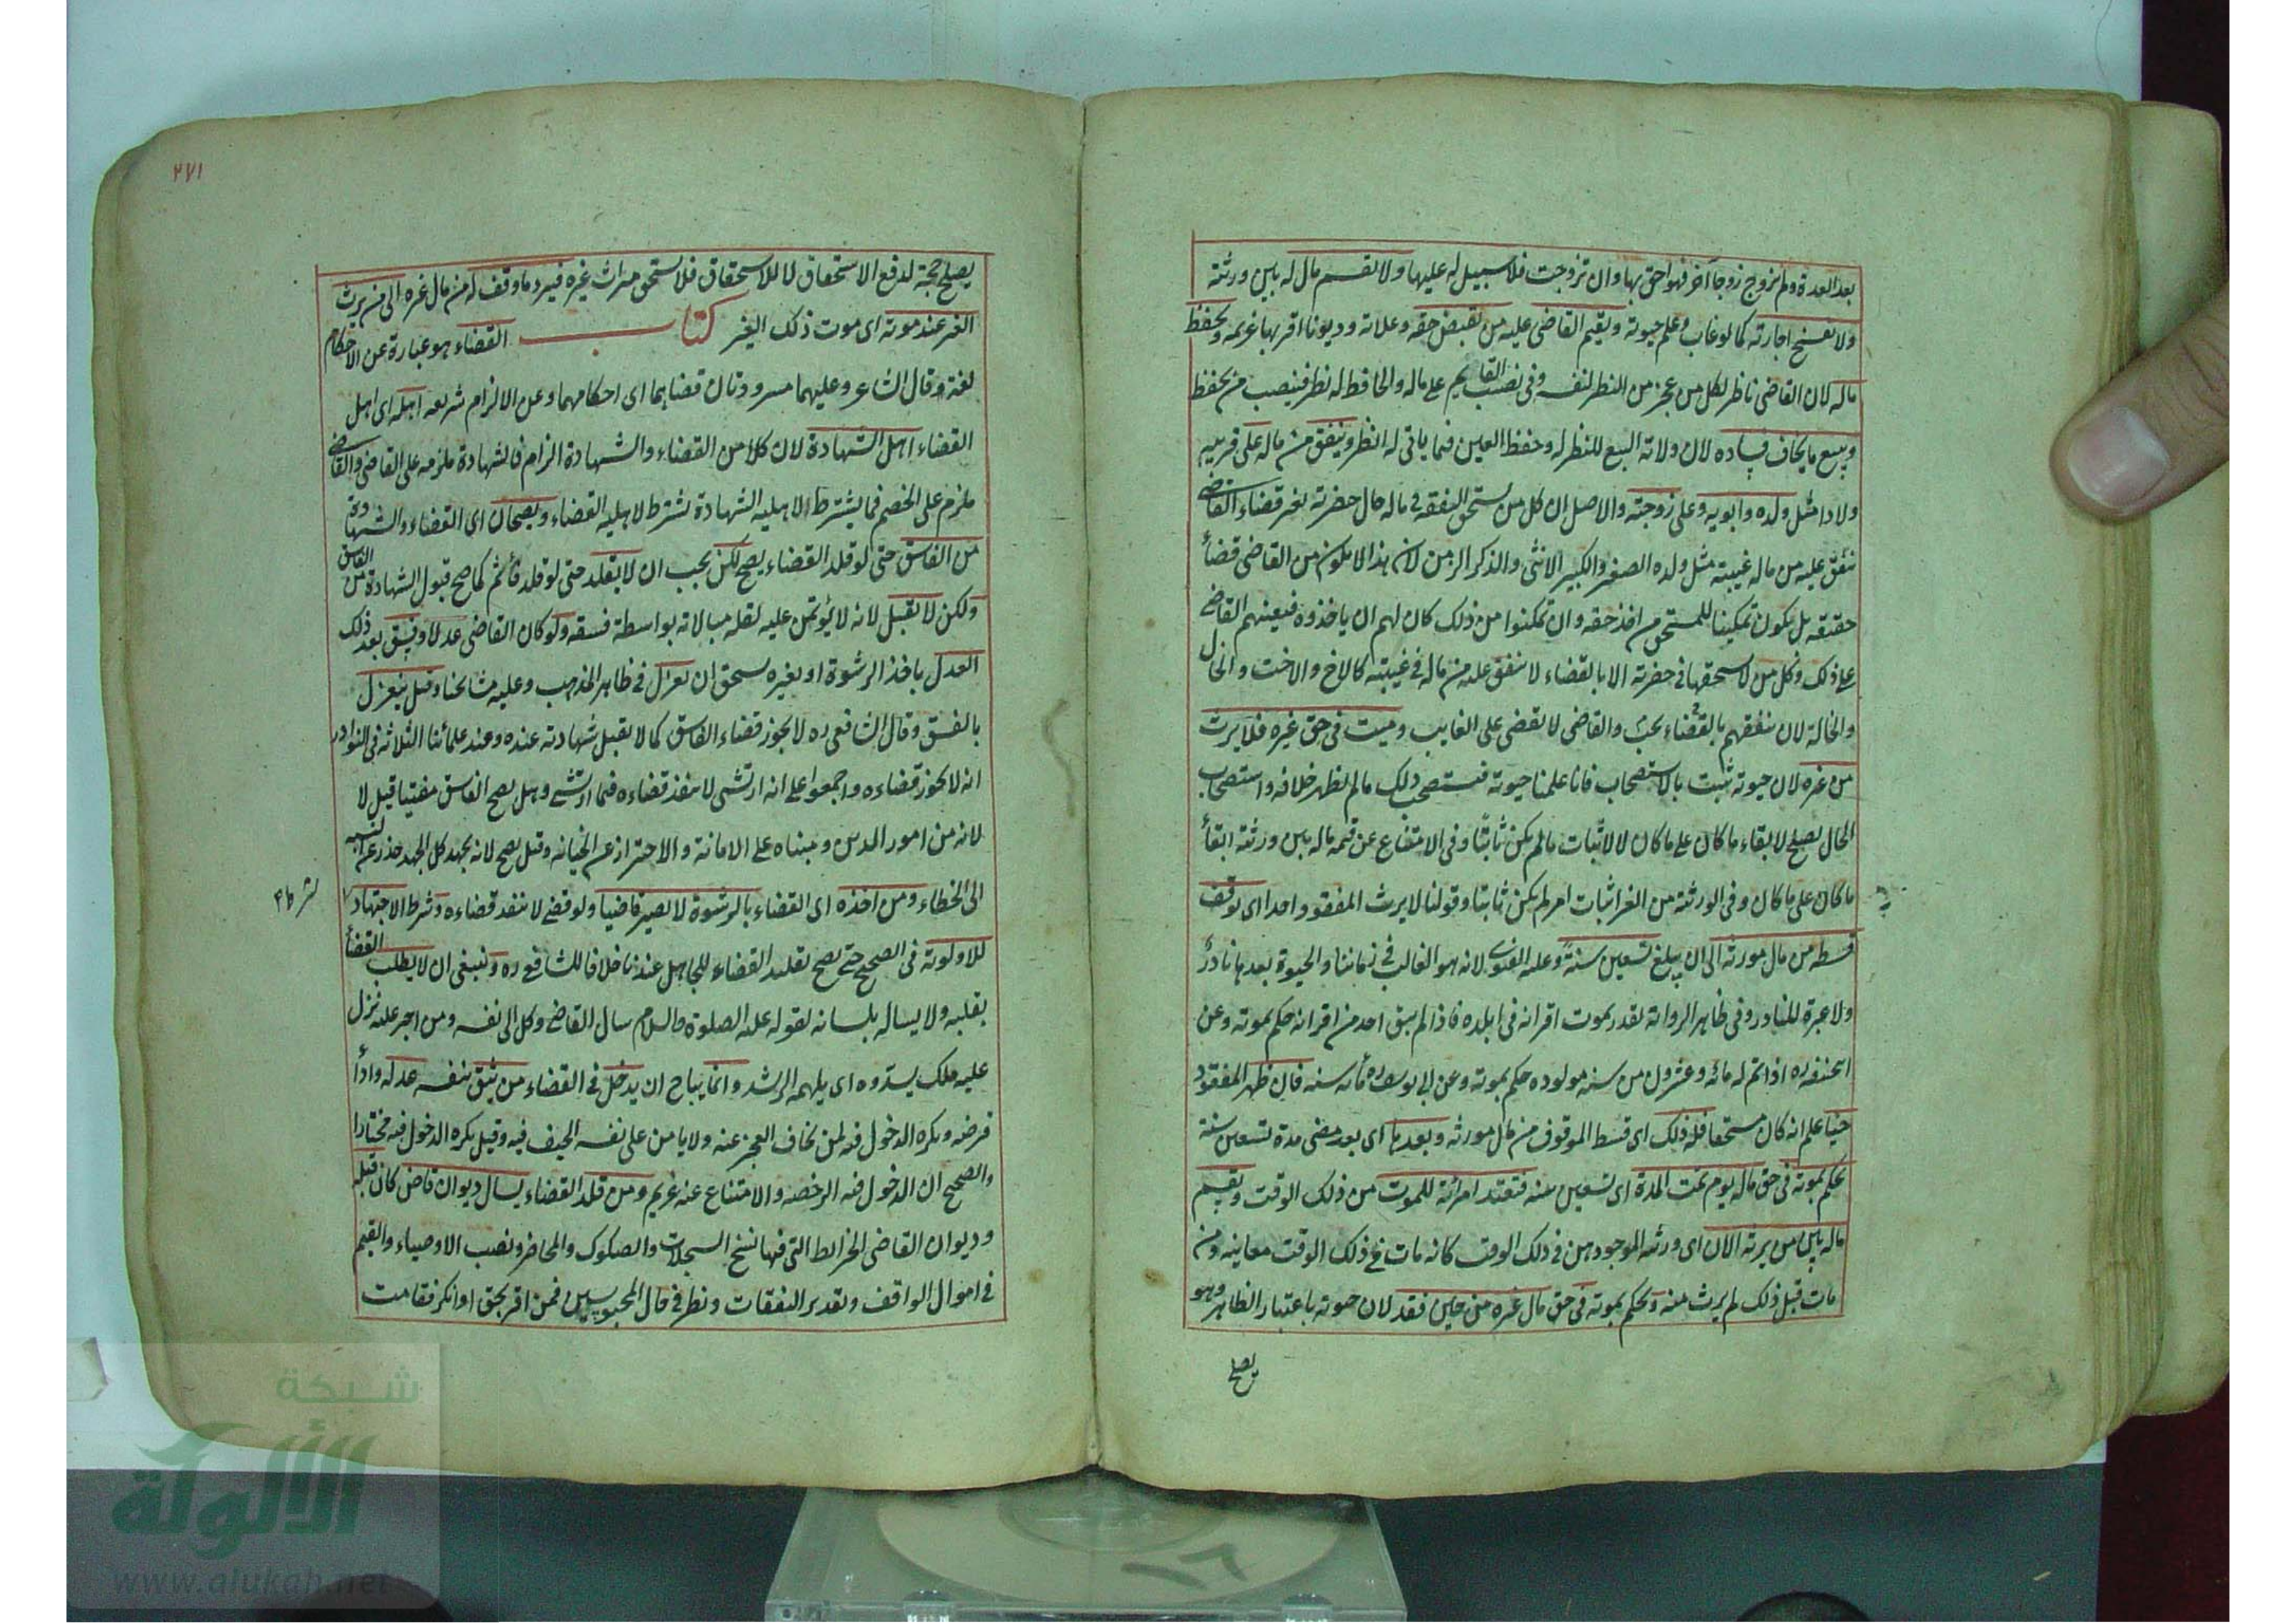 بعد العدة ولم تزوج زوجا آخر فهو احق بها وان تزوجت فلا سبيل له عليها ولا تقسم مال له بين ورثته
ولا تفسخ اجارته كما لو غاب وعلم حيوته ويقيم القاضى عليه من يقبض حقه وغلاته وديونا اقر بها غريمه ويحفظ
ماله لان القاضى ناظر لكل من عجز من النظر لنفسه وفى نصب القايم على ماله والحافظ له نظر فينصب من يحفظ
ويبيع ما يخاف فساده لان ولاية البيع للنظر له وحفظ العين فيما ياتى له انظر وينفق من ماله على قريبه
ولادا مثل ولده وابويه وعلى زوجته والاصل ان كل من يستحق النفقة فى ماله حال حضرته بغير قضاء القاضى
ينفق عليه من ماله غيبته مثل ولده الصغير والكبير الانثى والذكر الزمن لان هذا لا يكون من القاضى قضأ
حقيقه بل يكون تمكينا للمستحق من اخذ حقه وان تمكنوا من ذلك كان لهم ان ياخذوه فيعينهم القاضى
على ذلك وكل من لا يستحقها فى حضرته الا بالقضاء لا ينفق عليه من ماله فى غيبته كالاخ والاخت والخال
والخالة لان نفقتهم بالقضاء يجب والقاضى لا يقضى على الغايب وميت فى حق غيره فلا يرث
من غيره لان حيوته تثبت بالاستصحاب فانا علمنا حيوته فنستصحب ذلك مالم يظهر خلافه واستصحاب
الحال يصلح لابقاء ما كان على ما كان لا لاثبات مالم يكن ثابتا وفى الامتناع عن قسمة ماله بين ورثته ابقأ
ما كان على ما كان وفى الورثة من الغير اثبات امر لم يكن ثابتا وقولنا لا يرث المفقود واحدا اى يوقف
قسطه من مال مورثه الى ان يبلغ تسعين سنة وعليه الفتوى لانه هو الغالب فى زماننا والحيوة بعدها نادر
ولا عبرة للنادر وفى ظاهر الرواية يقدر بموت اقرانه فى بلده فاذا لم يبق احد من اقرانه حكم بموته وعن
ابحنيفه ره اذا تم له مائه وعشرون من سنه مولوده حكم بموته وعن ابى يوسف ره مأنه سنه فان ظهر المفقود
حيا علم انه كان مستحقا فله ذلك اى قسط الموقوف من مال مورثه وبعدها اى بعد مضى مدة تسعين سنة
يحكم بموته فى حق ماله يوم تمت المدة اى تسعين سنه فتعتد امرأته للموت من ذلك الوقت ويقسم
ماله بين من يرثه الان اى ورثه الموجودين فى ذلك الوقت كانه مات فى ذلك الوقت معاينه ومن
مات قبل ذلك لم يرث منه ويحكم بموته فى حق مال غيره من حين فقد لان حيوته باعتبار الظاهر وهو
يصلح
٢٧١
يصلح حجة لدفع الاستحقاق لا للاستحقاق فلا يستحق ميراث غيره فيرد ما وقف له من مال غيره الى من يرث
الغير عند موته اى موت ذلك الغير كتاب القضاء هو عبارة عن الاحكام
لغة وقال الشاعر وعليهما مسرودتان قضاهما اى احكامهما وعن الالزام شريعه اهله اى اهل
القضاء اهل الشهادة لان كلا من القضاء والشهادة الزام فالشهادة ملزمه على القاضى والقاضى
ملزم على الخصم فما يشترط لاهليه الشهادة يشترط لاهليه القضاء ويصحان اى القضاء والشهادة
من الفاسق حتى لو قلد القضاء يصح لكن يجب ان لا يقلد حتى لو قلد يأثم كما صح قبول الشهادة من الفاسق
ولكن لا يقبل لانه لا يؤتمن عليه لقله مبالاته بواسطة فسقه ولو كان القاضى عدلا وفسق بعد ذلك
العدل باخذ الرشوة او بغيره يستحق ان يعزل فى ظاهر المذهب وعليه مشايخنا وقيل ينعزل
بالفسق وقال الشافعى ره لا يجوز قضاء الفاسق كما لا يقبل شهادته عنده وعند علمائنا الثلاثه فى النوادر
انه لا يجوز قضاءه واجمعوا على انه ارتشى لا ينفذ قضاءه فيما ارتشى وهل يصح الفاسق مفتيا قيل لا
لانه من امور الدين ومبناه على الامانة والاحتراز عن الخيانه وقيل يصح لانه يجهد كل الجهد حذر عن
الى الخطاء ومن اخذه اى القضاء بالرشوة لا يصير قاضيا ولو قضى لا ينفذ قضاءه وشرط الاجتهاد
للاولوية فى الصحيح حتى يصح تقليد القضاء للجاهل عندنا خلافا للشافعى ره وينبغى ان لا يطلب القضأ
بقلبه ولا يساله بلسانه لقوله عليه الصلوة والسلام سال القاضى وكل الى نفسه ومن اجبر عليه نزل
عليه ملك يسدده اى يلهمه الرشد وانما يباح ان يدخل فى القضاء من يثق بنفسه عدله وادأ
فرضه ويكره الدخول فيه لمن يخاف العجز عنه ولا يامن على نفسه الحيف فيه وقيل يكره الدخول فيه مختارا
والصحيح ان الدخول فيه الرخصه والامتناع عنه عزيم ومن قلد القضاء يسال ديوان قاض كان قبله
وديوان القاضى الخرائط التى فيها نسخ السجلات والصكوك والمحاضر ونصب الاوصياء والقيم
فى اموال الواقف وتقدير النفقات ونظر فى حال المحبوسين فمن اقر بحق او انكر فقامت
شبكة
الألوكة
www.alukah.net